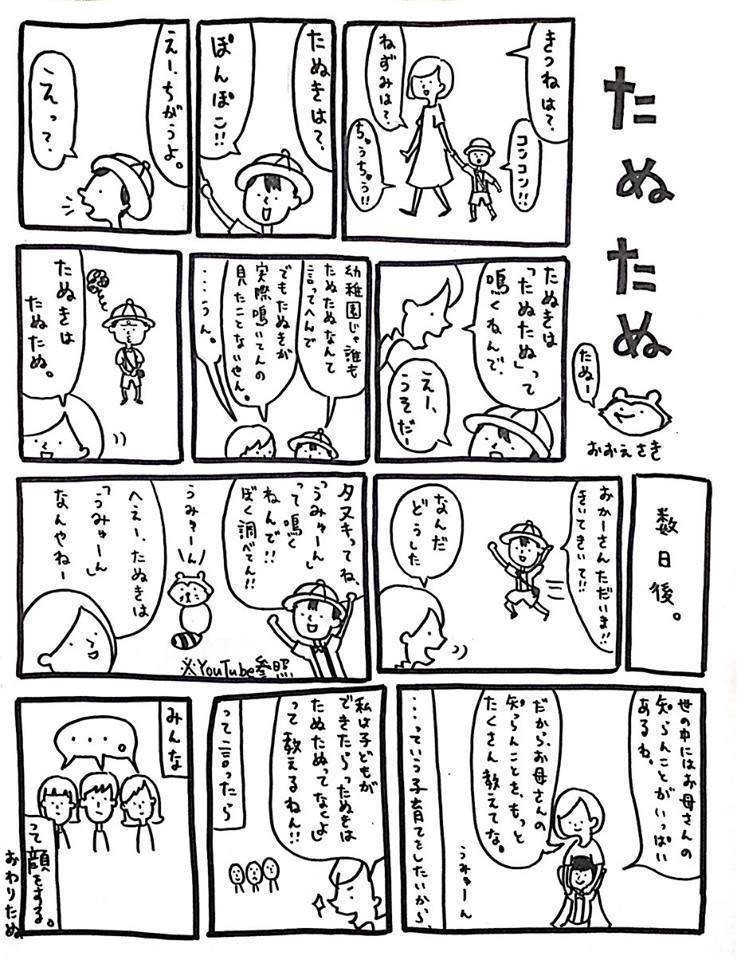 たぬたぬ
たぬー
おおえさき
きつねは?
コンコン!!
ねずみは?
ちゅうちゅう!!
たぬきは?
ぽんぽこ!!
えー、ちがうよ。
えって?
たぬきは
「たぬたぬ」って
鳴くねんで、
えー、
うそだー
幼稚園じゃ誰も
たぬたぬなんて
言ってへんで
でもたぬきが
実際鳴いてんの
見たことないやん。
・・・うん。
たぬきは
たぬたぬ。
数日後。
おかーさんただいま!!
きいてきいて!!
なんだ
どうした
タヌキってね、
「うみゅーん」
って鳴く
ねんで!!
ぼく調べてん!!
うみゅーん
※YouTube参照
へえー、たぬきは
「うみゅーん」
なんやねー
世の中にはお母さんの
知らんことがいっぱい
あるね。
だから、お母さんの
知らんことを、もっと
たくさん教えてな。
うみゅーん
・・・っていう子育てをしたいから、
私は子どもが
できたら、たぬきは
たぬたぬってなくよ
って教えるねん!!
って言ったら
みんな
・・・。
って顔をする。
おわりたぬ